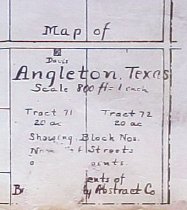 Map of
Davis
Angleton, Texas
Scale 800 ft = 1 inch
Tract 71 Tract 72
20 ac 20 ac
Showing Block Nos.
Streets
oints
ents of
By Abstract Co